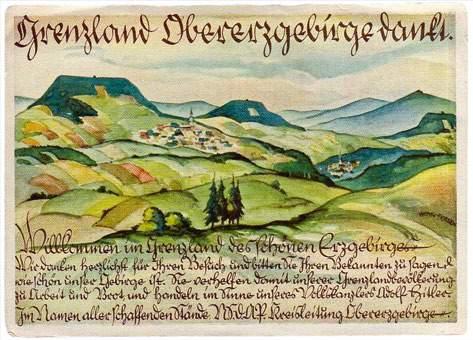 Grenzland Obererzgebirge dankt.
Willkommen im Grenzland des schönen Erzgebirges
Wir danken herzlichst für Ihren Besuch und bitten Sie Ihren Bekannten zu sagen,
wie schön unser Gebirge ist. Sie verhelfen damit unserer Grenzlandbevölkerung
zu Arbeit und Brot, und handeln im Sinne unseres Volkskanzlers Adolf Hitler.
Im Namen aller schaffenden Stände N.S.D.A.P. Kreisleitung Obererzgebirge